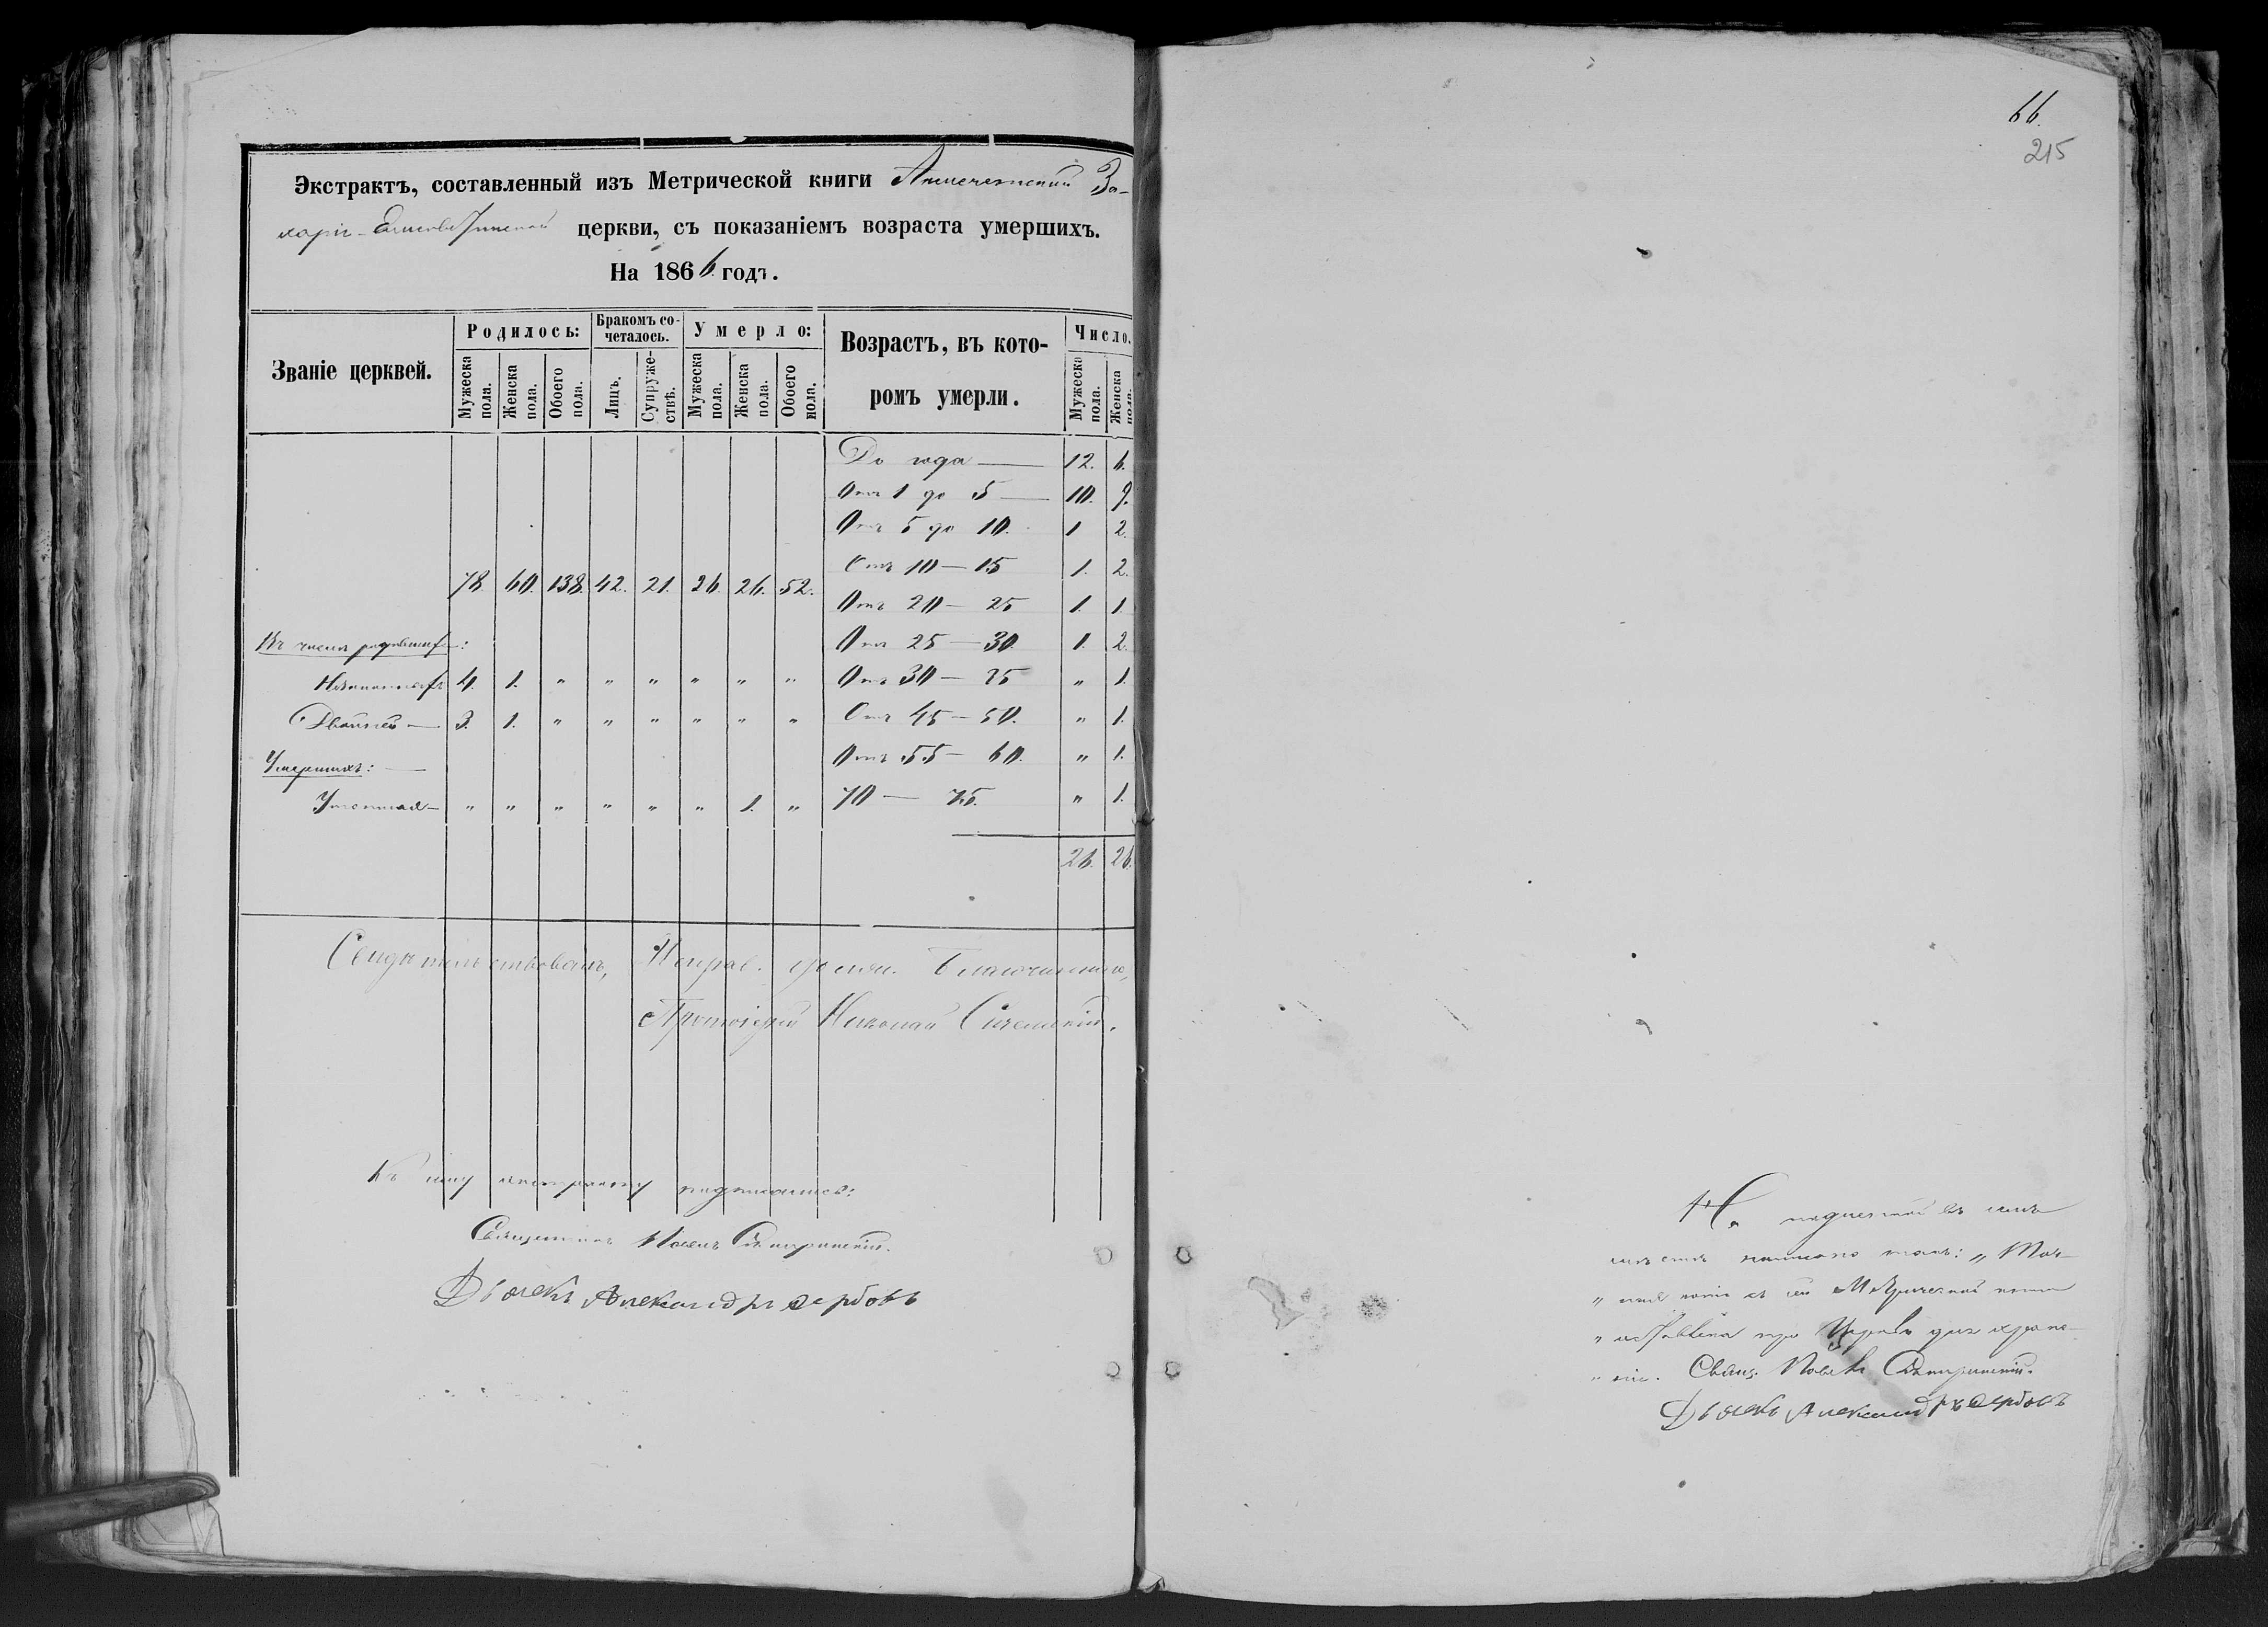 Экстрактъ, составленный изъ Метрической книги Акмечетской За-
харіе-Елисаветинской церкви, съ показаніемъ возраста умершихъ.
На 1866. годъ.
Званіе церквей. Родилось: Бракомъ сочеталось. Умерло: Возрастъ, въ которомъ умерли. Число.
Мужеска пола. Женска пола. Обоего пола. Лицъ. Супружествъ. Мужеска пола. Женска пола. Обоего пола. Мужеска пола. Женска пола.
До года — 12. 6.
Отъ 1 до 5 — 10. 9.
Отъ 5 до 10. 1 2.
Отъ 10 — 15 1. 2.
78. 60. 138. 42. 21. 26. 26. 52.
Отъ 20 — 25 1. 1.
Въ числѣ родившихся:
Отъ 25 — 30 1. 2.
Незаконныхъ 4. 1. " " " " " "
Отъ 30 — 35 " 1.
Двойней — 3. 1. " " " " " "
Отъ 45 — 50. " 1.
Умершихъ: —
Отъ 55 — 60. " 1.
" " " " " " 1. "
70 — 75. " 1.
26. 26.
Свидѣтельствовалъ, Исправ. должн. Благочиннаго,
Протоіерей Николай
Къ сему экстракту подписались:
Священникъ
Дьячекъ Александръ Сербовъ
66.
215
На подлинной въ семъ
мѣстѣ написано такъ: „Точ-
„ная копія съ сей Метрической книги
„оставлена при Церкви для хране-
„нія. Свящ.
Дьячекъ Александръ Сербовъ